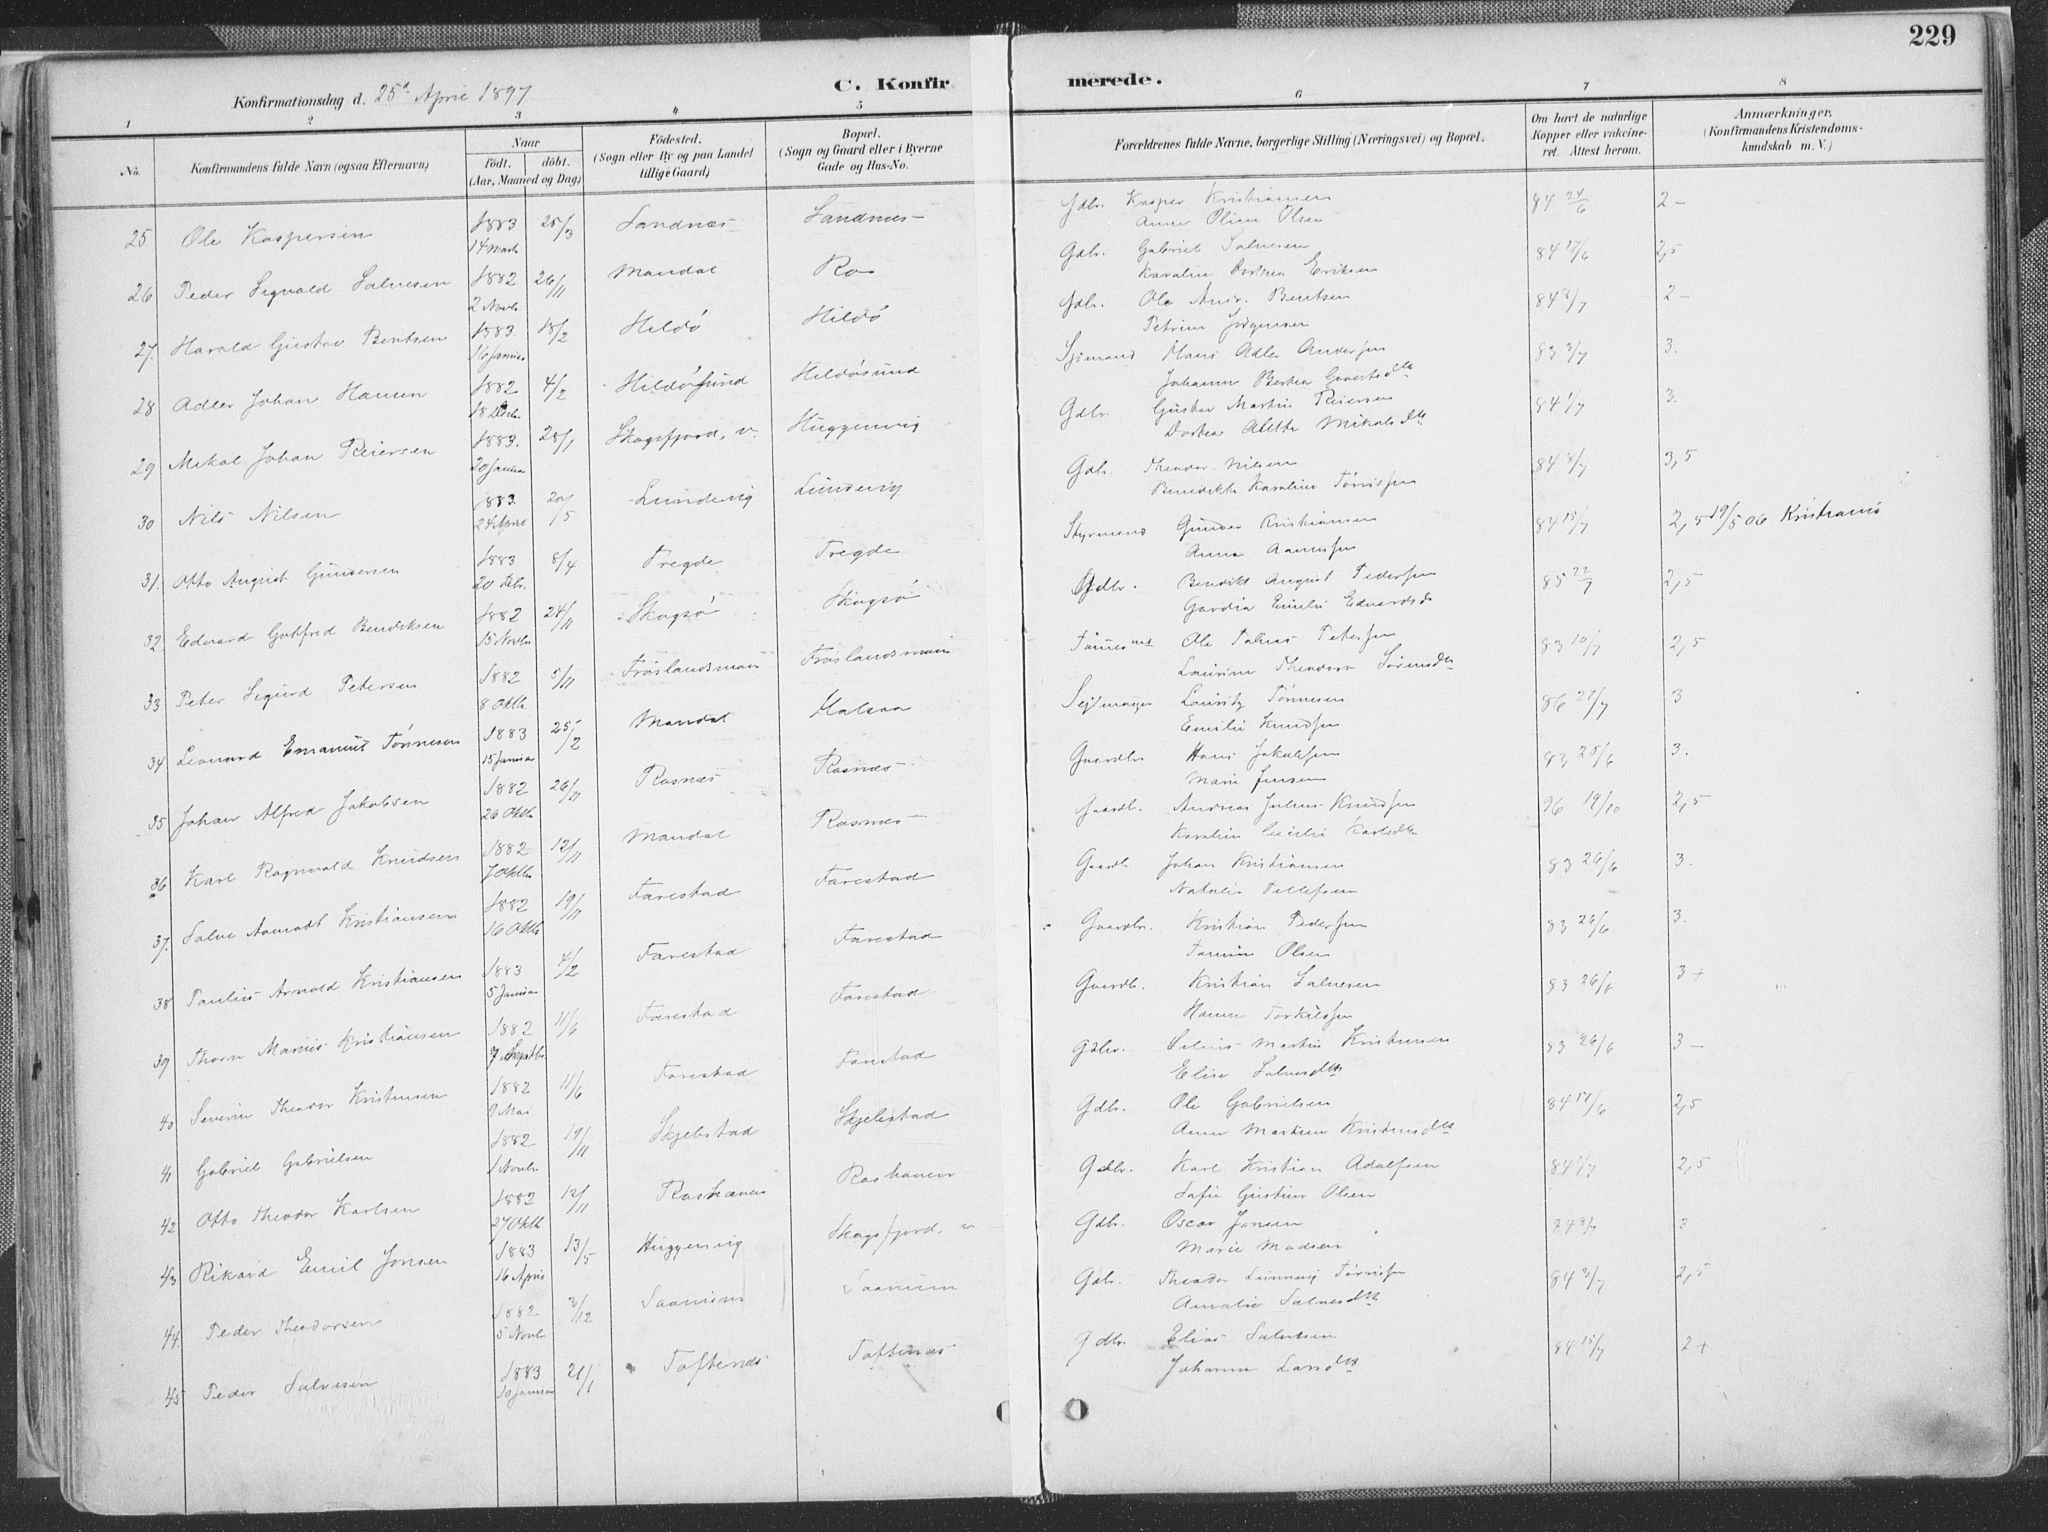 229
Konfirmationsdag d. 25d April 1897
C. Konfirmerede.
1 2 3 4 5 6 7 8
No.
Konfirmandens fulde Navn (ogsaa Efternavn)
Naar
födt. döbt.
(Aar, Maaned og Dag)
Födested.
(Sogn eller By og paa Landet
tillige Gaard)
Bopæl.
(Sogn og Gaard eller i Byerne
Gade og Hus-No.
Forældrenes fulde Navne, borgerlige Stilling (Næringsvei) og Bopæl.
Om havt de naturlige
Kopper eller vakcine-
ret. Attest herom.
Anmærkninger.
(Konfirmandens Kristendoms-
kundskab m. V.)
25 Ole Kaspersen 1883 14 Marts 25/3 Sandnæs Sandnæs Gdbr. Kasper Kristiansen
Anne Oline Olsen 84 24/6 2 -
26 Peder Sigvald Salvesen 1882 2 Novbr 26/11 Mandal Ro Gdbr. Gabriel Salvesen
Karoline Dorthea Eriksen 84 17/6 2,5
27. Harald Gustav Bentsen 1883 16 Januar 18/2 Hildö Hildö Gdbr. Ole Andr. Bentsen
Petrine Jörgensen 84 2/7 2 -
28 Adler Johan Hansen 1882 18 Decbr 4/2 Hildösund Hildösund Sjömand Hans Adler Andersen
Johanne Bertea 83 3/7 3.
29 Mikal Johan Reiersen 1883. 20 Januar 28/1 Skogsfjord, v. Huggenvig Gdbr. Gustav Martin Reiersen
Dortea Alette Mikalsdtr 84 1/7 3.
30 Nils Nilsen 1883 24 April 20/5 Lundevig Lundevig Gdbr. Theodor Nilsen
Benedikte Karoline Tönnessen 84 8/7 3,5
31. Otto August Gundersen 1883 20 Febr. 8/4 Tregde Tregde Styrmand Gunder Kristiansen
Anna Aanensen 84 15/7 2,5 19/5 06 Kristiania
32 Edvard Gotfred Bendiksen 1882 15 Novbr 24/11 Skogsö Skogsö Gdbr. Bendikt August Pedersen
Gardia Emilie Edvardsd. 85 22/7 2,5
33 Peter Sigurd Petersen 1882 8 Oktbr. 5/11 Fröslandsmoen Fröslandsmoen Ole Tobias Petersen
Laurine Theodora Sörensdtr 83 10/7 2,5
34 Leonard Emanuel Tönnesen 1883 15 Januar 25/2 Mandal Halsaa Sejlmager Lauritz Tönnesen
Emilie Knudsen 86 27/7 3
35 Johan Alfred Jakobsen 1882 26 Oktbr 26/11 Rosnæs Rosnæs Gaardbr Hans Jakobsen
Marie Jensen 83 25/6 3.
36 Karl Ragnvald Knudsen 1882 7 Oktbr 12/11 Mandal Rosnæs Gaardb. Andreas Julius Knudsen
Karoline Cecilie Karlsdtr 96 19/10 2,5
37. Salve Aamodt Kristiansen 1882 16 Oktbr 19/11 Farestad Farestad Gaardb. Johan Kristiansen
Natalie Tellefsen 83 26/6 3.
38 Paulius Arnold Kristiansen 1883 5 Januar 4/2 Farestad Farestad Gaardbr. Kristian Pedersen
Tomine Olsen 83 26/6 3.
39 Thorn Marius Kristiansen 1882 7 Septbr 11/6 Farestad Farestad Gaardb. Kristian Salvesen
Hanne Torkildsen 83 26/6 3 +
40 Severin Theodor Kristensen 1882 9 Mai 11/6 Farestad Farestad Gdbr. Martin Kristensen
Elise Salvesdtr 83 26/6 3 -
41 Gabriel Gabrielsen 1882 1 Novbr. 19/11 Skjebstad Skjebstad Gdbr. Ole Gabrielsen
Anne Martine Kristensdtr 84 17/6 2,5
42 Otto Theodor Karlsen 1882 27 Oktb 12/11 Roshavn Roshavn Gdbr. Karl Kristian Adolfsen
Sofie Gustine Olsen 84 1/7 2,5
43 Rikard Emil Jonsen 1883 16 April 13/5 Huggenvig Skogsfjord. v Gdbr. Oscar Jonsen
Marie Madsen 84 8/7 3
44 Peder Theodorsen 1882 5 Novbr 3/12 Saanum Saanum Gdbr. Theodor Lunnevig Tönnessen
Amalie Salvesdtr 84 3/7 2,5
45 Peder Salvesen 1883 10 Januar 21/1 Toftenæs Toftenæs Gdbr. Elias Salvesen
Johanne Larsdtr 84 15/7 2 +